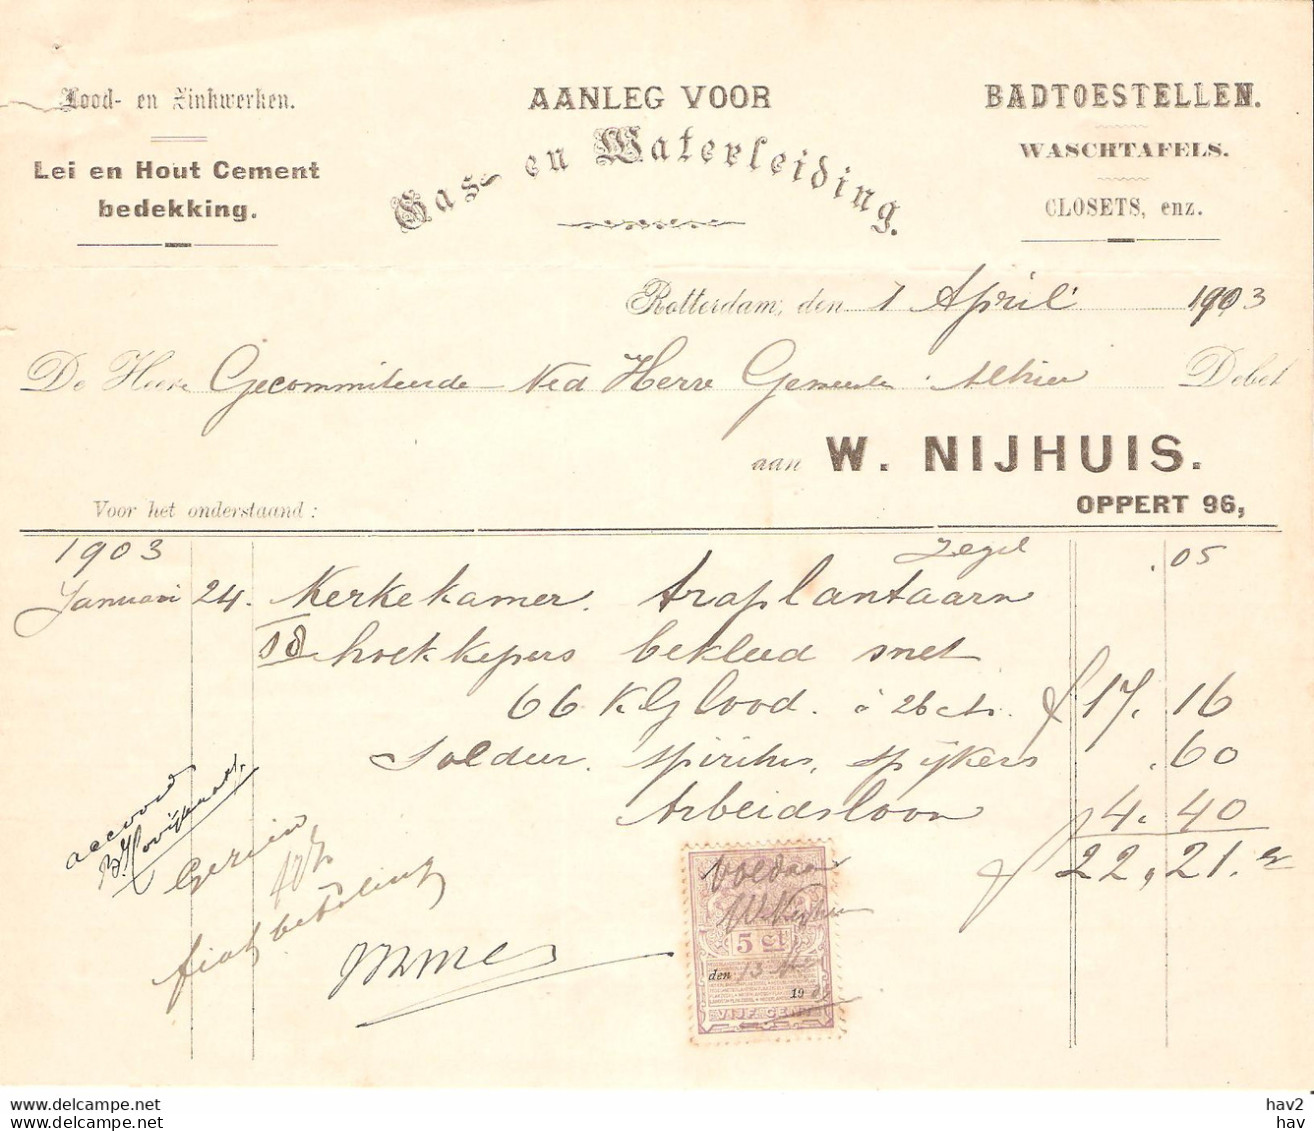 Lood- en Zinkwerken.
Lei en Hout Cement
bedekking.
AANLEG VOOR
Gas- en Waterleiding.
BADTOESTELLEN.
WASCHTAFELS.
CLOSETS, enz.
Rotterdam, den 1 April 1903
De Heere Gecommiteerde - Ned Herv Gemeente Alhier Debet
aan W. NIJHUIS.
OPPERT 96,
Voor het onderstaand :
1903 Zegel .05
Januari 24. Kerkekamer.
hoekkepers bekleed met
66 KG lood. à 26 cts. f 17.16
Soldeer. spiritus, spijkers .60
Arbeidsloon 4.40
f 22,21.
accoord
Gezien
fiat betaling
Voldaan
W. Nijhuis
5 ct
den 13
19
VIJF CENT
delcampe.net
delcampe.net
hav2
hav